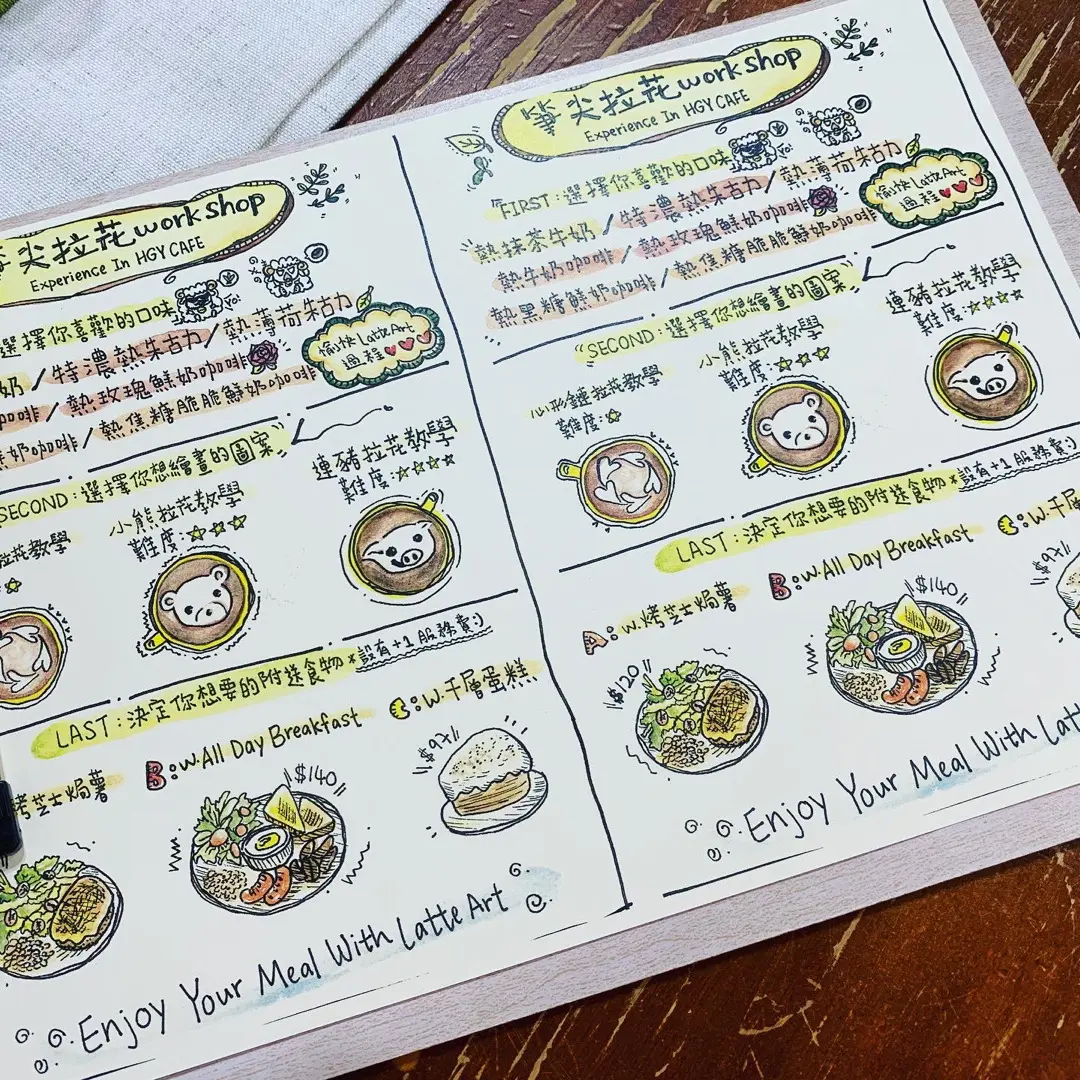 尖拉花work shop
Experience In HGY CAFE
選擇你喜歡的口味
Yo!
奶 / 特濃熱朱古力 / 熱薄荷朱古力
咖啡 / 熱玫瑰鮮奶咖啡
奶咖啡 / 熱焦糖脆脆鮮奶咖啡
愉快Latte Art
過程
SECOND:選擇你想繪畫的圖案
拉花教學
小熊拉花教學
難度:☆☆☆
連豬拉花教學
難度:☆☆☆☆
LAST:決定你想要的附送食物 *設有+1服務費:)
烤芝士焗薯
B:W.All Day Breakfast
$140
C:W.千層蛋糕
$97
Enjoy Your Meal With Latte Art
筆尖拉花work shop
Experience In HGY CAFE
FIRST:選擇你喜歡的口味
Yo!
熱抹茶牛奶 / 特濃熱朱古力 / 熱薄荷朱古力
熱牛奶咖啡 / 熱玫瑰鮮奶咖啡
熱黑糖鮮奶咖啡 / 熱焦糖脆脆鮮奶咖啡
愉快Latte Art
過程
SECOND:選擇你想繪畫的圖案
心形鏈拉花教學
難度:☆
小熊拉花教學
難度:☆☆☆
連豬拉花教學
難度:☆☆☆☆
LAST:決定你想要的附送食物 *設有+1服務費:)
A:W.烤芝士焗薯
$120
B:W.All Day Breakfast
$140
C:W.千
$97
Enjoy Your Meal With Latt